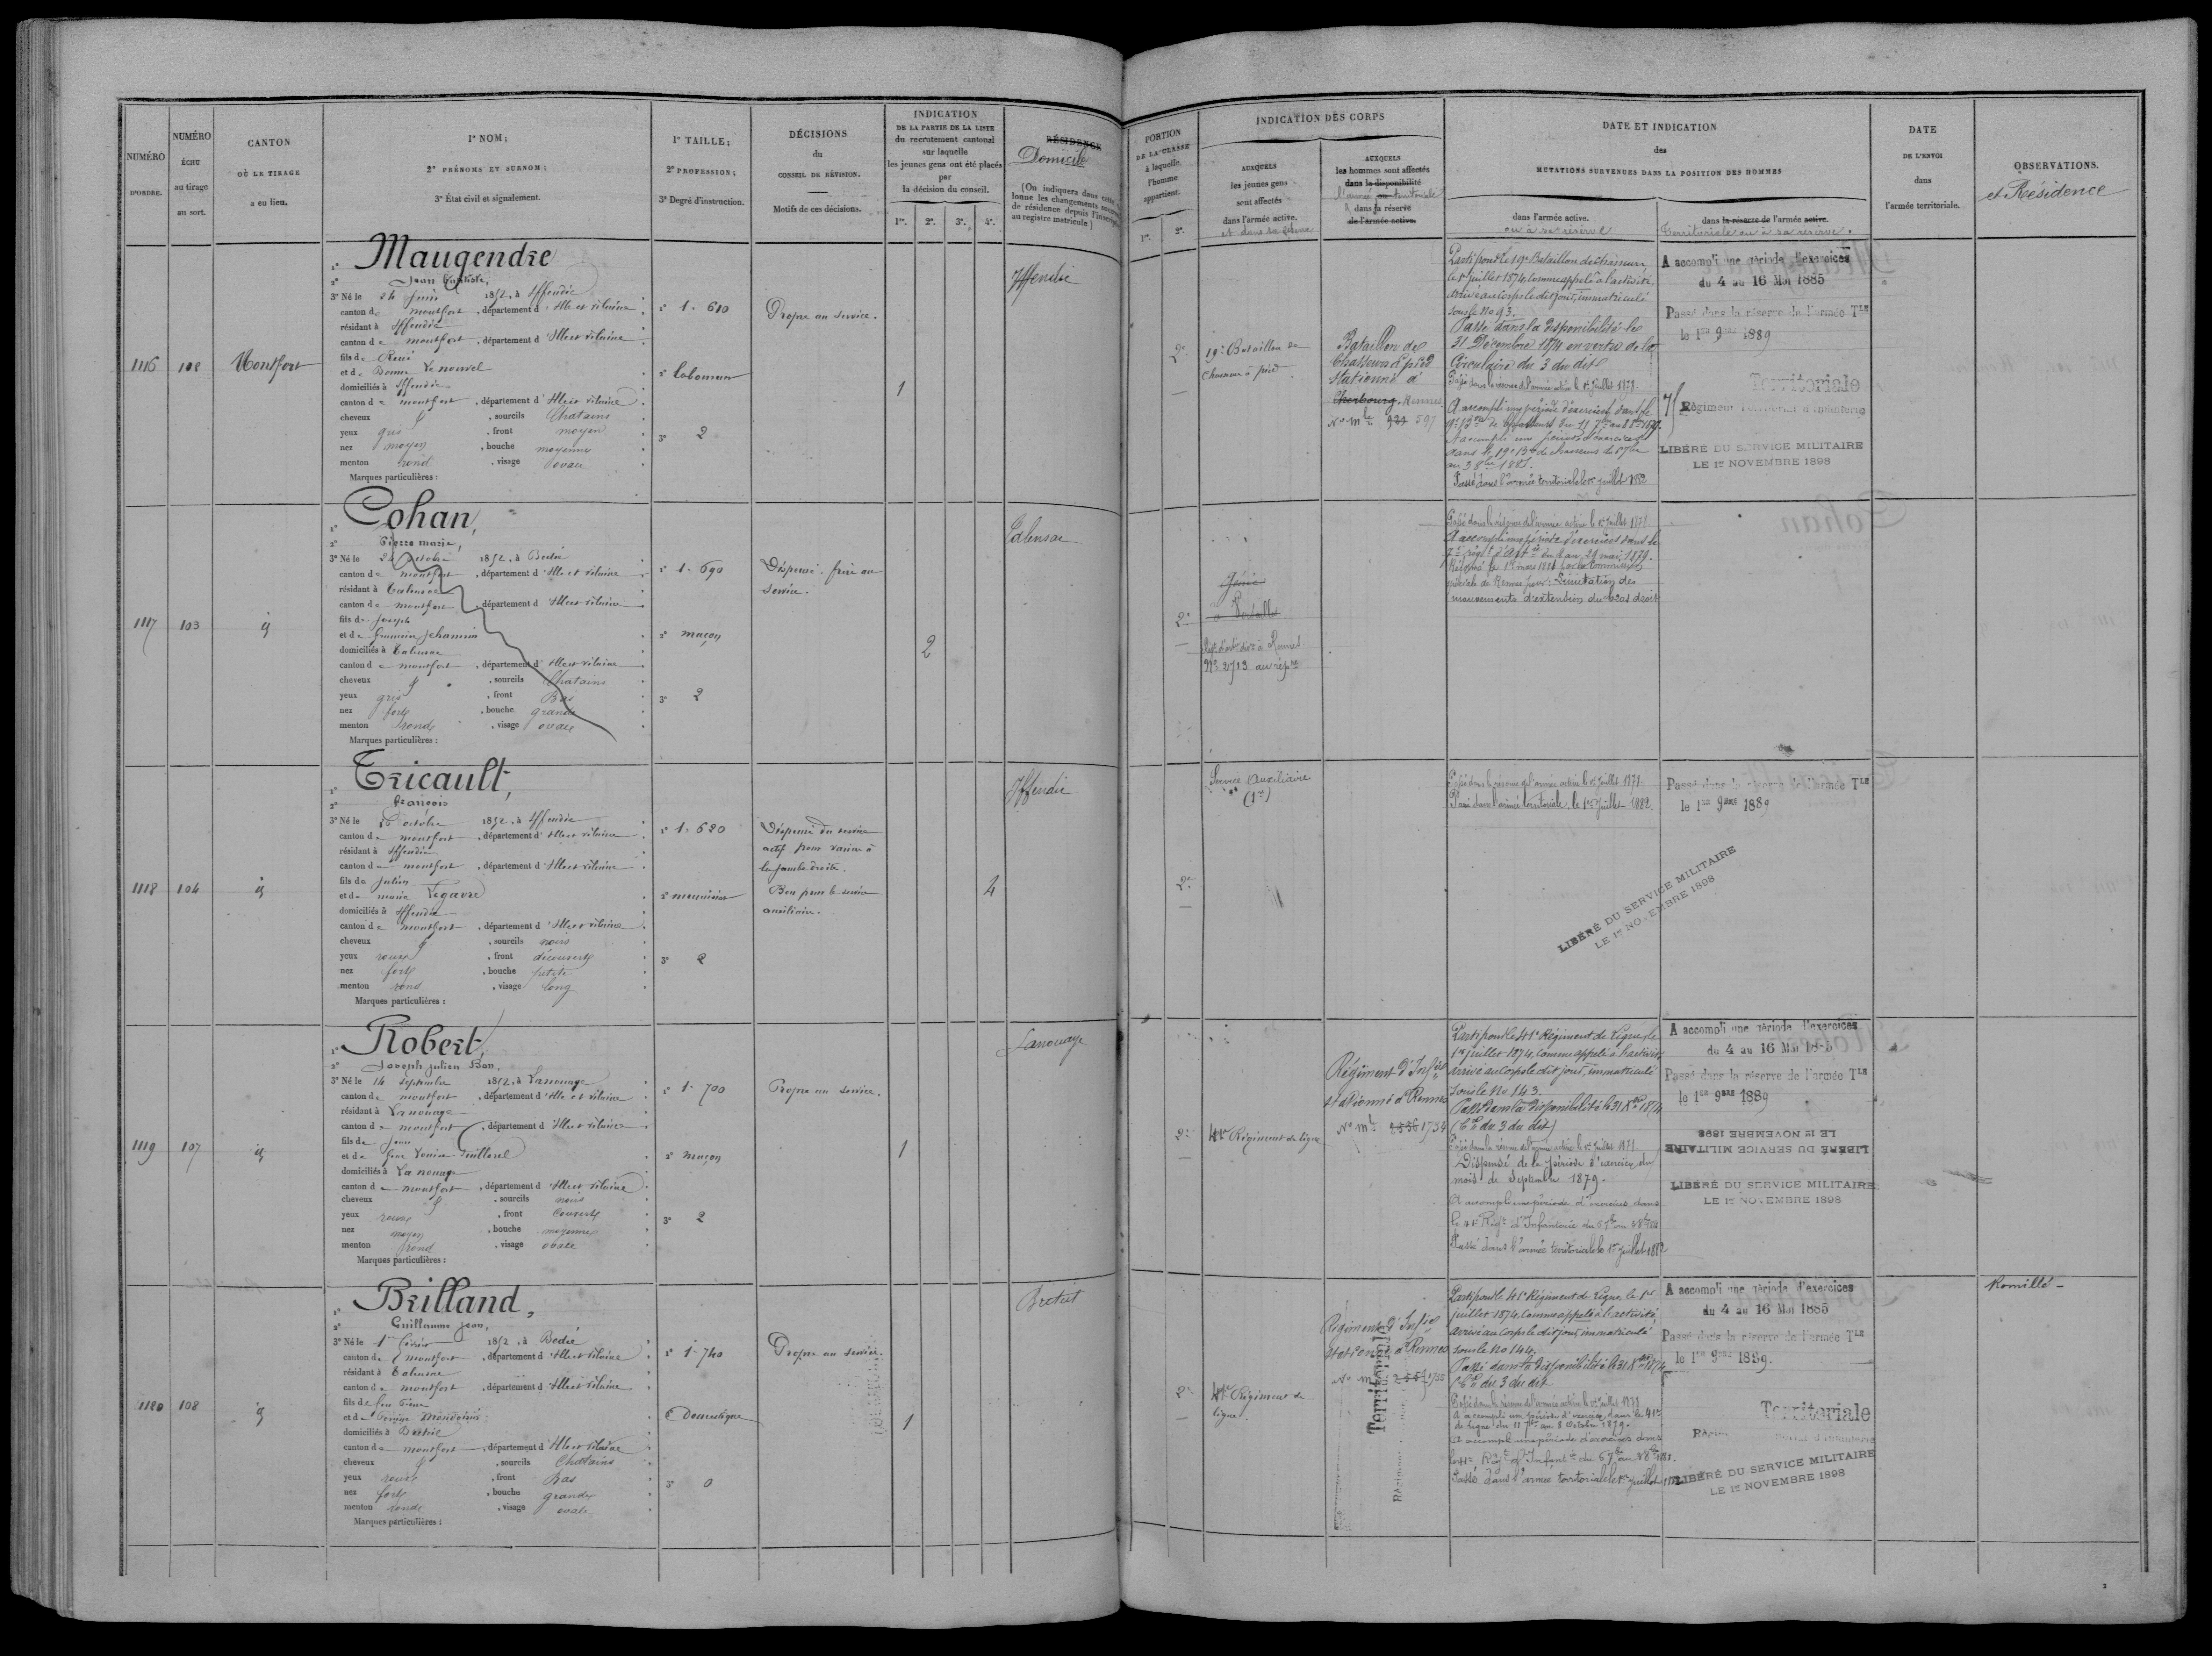 NUMÉRO
D'ORDRE.
NUMÉRO
ÉCHU
au tirage
au sort.
CANTON
OÙ LE TIRAGE
a eu lieu.
1º NOM;
2º PRÉNOMS ET SURNOM;
3º État civil et signalement.
1º TAILLE;
2º PROFESSION;
3º Degré d'instruction.
DÉCISIONS
du
CONSEIL DE RÉVISION.
Motifs de ces décisions.
INDICATION
DE LA PARTIE DE LA LISTE
du recrutement cantonal
sur laquelle
les jeunes gens ont été placés
par
la décision du conseil.
1re. 2e. 3e. 4e.
RÉSIDENCE
Domicile
(On indiquera dans cette
lonne les changements
de résidence depuis
au registre matricule.)
PORTION
DE LA CLASSE
à laquelle
l'homme
appartient.
1re. 2e.
INDICATION DES CORPS
AUXQUELS
les jeunes gens
sont affectés
dans l'armée active.
et dans sa réserve
AUXQUELS
les hommes sont affectés
dans la disponibilité
l'armée territoriale
dans la réserve
de l'armée active.
DATE ET INDICATION
des
MUTATIONS SURVENUES DANS LA POSITION DES HOMMES
dans l'armée active.
ou à sa réserve
dans la réserve de l'armée active.
Territoriale ou à sa réserve.
DATE
DE L'ENVOI
dans
l'armée territoriale.
OBSERVATIONS.
et Résidence
1116 102 Montfort
1º Maugendre
2º Jean Baptiste,
3º Né le 24 juin 1852, à Iffendic
canton de montfort, département d'Ille et vilaine
résidant à Iffendic
canton de montfort, département d'Ille et vilaine
fils de René
et de Bonne Le nouvel
domiciliés à Iffendic
canton de montfort, département d'Ille et vilaine
cheveux, sourcils Chatains
yeux gris, front moyen
nez moyen, bouche moyenne
menton rond, visage ovale
Marques particulières :
1º 1. 610
2º laboureur
3º 2
Propre au service.
1
Iffendic
2e
19e Bataillon de
Chasseurs à pied
Bataillon de
Chasseurs à pied
stationné à
Cherbourg. Rennes
No mle 597
Parti pour le 19e Bataillon de chasseurs
le 1er juillet 1874, comme appelé à l'activité,
arrivé au corps le dit jour, immatriculé
sous le No 93.
Passé dans la disponibilité le
31 Décembre 1874 en vertu de la
Circulaire du 3 du dit
Passé dans la réserve de l'armée active le 1er juillet
A accompli une période d'exercices dans le
Passé dans l'armée territoriale le 1er juillet 1882
A accompli une période d'exercices
du 4 au 16 Mai 1885
Passé dans la réserve de l'armée TLE
le 1er 9bre 1889
Territoriale
Régiment Territorial d'Infanterie
LIBÉRÉ DU SERVICE MILITAIRE
LE 1er NOVEMBRE 1898
1117 103 id
1º Cohan,
2º Pierre marie,
3º Né le octobre 1852, à Bedée
canton de montfort, département d'Ille et vilaine
résidant à Talensac
canton de montfort, département d'Ille et vilaine
fils de Joseph
domiciliés à Talensac
canton de montfort, département d'Ille et vilaine
cheveux, sourcils Chatains
yeux gris, front Bas
nez fort, bouche grande
menton rond, visage ovale
Marques particulières :
1º 1. 690
2º maçon
3º 2
Dispensé. frère au
service.
2
Talensac
2e
Génie
à Versailles
Passé dans la réserve de l'armée active le 1er juillet
A accompli une période d'exercices dans le
Réformé le 1er mars 1881 par la commission
spéciale de Rennes pour: Limitation des
mouvements d'extension du bras droit
1118 104 id
1º Tricault,
2º François
3º Né le octobre 1852, à Iffendic
canton de montfort, département d'Ille et vilaine
résidant à Iffendic
canton de montfort, département d'Ille et vilaine
fils de Julien
et de marie Legavre
domiciliés à Iffendic
canton de montfort, département d'Ille et vilaine
cheveux, sourcils noirs
yeux roux, front découvert
nez fort, bouche petite
menton rond, visage long
Marques particulières :
1º 1. 620
2º menuisier
3º 2
Dispensé du service
actif pour varices à
la jambe droite.
Bon pour le service
auxiliaire.
4
Iffendic
2e
Service Auxiliaire
(1er)
Passé dans la réserve de l'armée active le 1er juillet
Passé dans l'armée territoriale, le 1er juillet 1882.
Passé dans la réserve de l'armée TLE
le 1er 9bre 1889
LIBÉRÉ DU SERVICE MILITAIRE
LE 1er NOVEMBRE 1898
1119 107 id
1º Robert,
2º Joseph julien Bon,
3º Né le 14 septembre 1852, à Lanouaye
canton de montfort, département d'Ille et vilaine
résidant à Lanouaye
canton de montfort, département d'Ille et vilaine
fils de Jean
et de feue Louise Guillorel
domiciliés à La nouaye
canton de montfort, département d'Ille et vilaine
cheveux, sourcils noirs
yeux roux, front couvert
nez moyen, bouche moyenne
menton rond, visage ovale
Marques particulières :
1º 1. 700
2º maçon
3º 2
Propre au service.
1
Lanouaye
2e
41e Régiment de ligne
Régiment d'Infie
stationné à Rennes
No mle 1754
Parti pour le 41e Régiment de ligne le
1er juillet 1874, comme appelé à l'activité
arrivé au corps le dit jour, immatriculé
sous le No 143.
Passé dans la disponibilité le 31 Xbre 1874
(Cre du 3 du dit)
Passé dans la réserve de l'armée active le 1er juillet
Dispensé de la période d'exercices du
mois de Septembre 1879.
A accompli une période d'exercices dans
le 41e Régt d'Infanterie
Passé dans l'armée territoriale le 1er juillet 1882
A accompli une période d'exercices
du 4 au 16 Mai 1885
Passé dans la réserve de l'armée TLE
le 1er 9bre 1889
LIBÉRÉ DU SERVICE MILITAIRE
LE 1er NOVEMBRE 1898
LIBÉRÉ DU SERVICE MILITAIRE
LE 1er NOVEMBRE 1898
1120 108 id
1º Brilland,
2º Guillaume Jean,
3º Né le 1er février 1852, à Bedée
canton de montfort, département d'Ille et vilaine
résidant à Talensac
canton de montfort, département d'Ille et vilaine
domiciliés à Breteil
canton de montfort, département d'Ille et vilaine
cheveux, sourcils Chatains
yeux roux, front Bas
nez fort, bouche grande
menton rond, visage ovale
Marques particulières :
1º 1. 740
2º Domestique
3º 0
Propre au service.
1
Breteil
2e
41e Régiment de
ligne.
Régiment d'Infie
stationné à Rennes
Territoriale
Parti pour le 41e Régiment de ligne, le 1er
juillet 1874, comme appelé à l'activité,
arrivé au corps le dit jour, immatriculé
sous le No 144.
Passé dans la disponibilité le 31 Xbre 1874
(Cre du 3 du dit
Passé dans la réserve de l'armée active le 1er juillet
A accompli une période d'exercices dans le 41e
de ligne du 11 7bre au 8 Octobre 1879.
A accompli une période d'exercices dans
Passé dans l'armée territoriale le 1er juillet
A accompli une période d'exercices
du 4 au 16 Mai 1885
Passé dans la réserve de l'armée TLE
le 1er 9bre 1889.
Territoriale
LIBÉRÉ DU SERVICE MILITAIRE
LE 1er NOVEMBRE 1898
Romillé